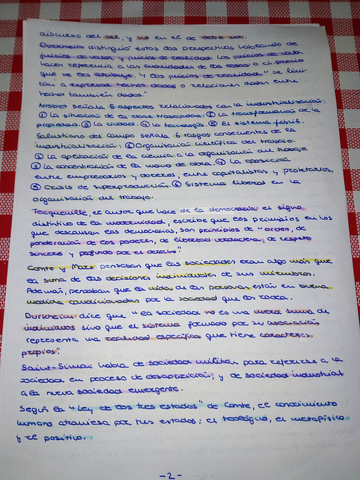 discurso del ser, y en el de debe ser.
Durkheim distinguió estas dos perspectivas hablando de
juicios de valor y juicios de realidad. Los juicios de valor
hacen referencia a las cualidades de las cosas o al precio
que se les atribuye. Y los juicios de realidad "se limi-
tan a expresar hechos dados o relaciones dadas entre
hechos también dados"
Nisbet señala 5 aspectos relacionados con la industrialización:
① la situación de la clase trabajadora ② la transformación de la
propiedad ③ la ciudad ④ la tecnología ⑤ El sistema fabril.
Salustiano del Campo señala 6 rasgos consecuentes de la
industrialización: ① Organización científica del trabajo.
② La aplicación de la ciencia a la organización del trabajo.
③ La concentración de la mano de obra. ④ La oposición
entre empresarios y obreros, entre capitalistas y proletarios.
⑤ Crisis de superproducción. ⑥ Sistema liberal en la
organización del trabajo.
Tocqueville, el autor que hace de la democracia el signo
distintivo de la modernidad, escribe que los principios en los
que descansan las democracias, son principios de "orden, de
ponderación de los poderes, de libertad verdadera, de respeto
sincero y profundo por el derecho"
Comte y Marx pensaban que las sociedades eran algo más que
la suma de las decisiones individuales de sus miembros.
Además, pensaban que las vidas de las personas están en buena
medida condicionadas por la sociedad que los rodea.
Durkheim dice que "la sociedad no es una mera suma de
individuos sino que el sistema formado por su asociación
representa una realidad específica que tiene caracteres
propios".
Saint-Simon habla de sociedad militar para referirse a la
sociedad en proceso de desaparición, y de sociedad industrial
a la nueva sociedad emergente.
Según la "Ley de los tres estados" de Comte, el conocimiento
humano atraviesa por tres estados: el teológico, el metafísico
y el positivo.
-2-